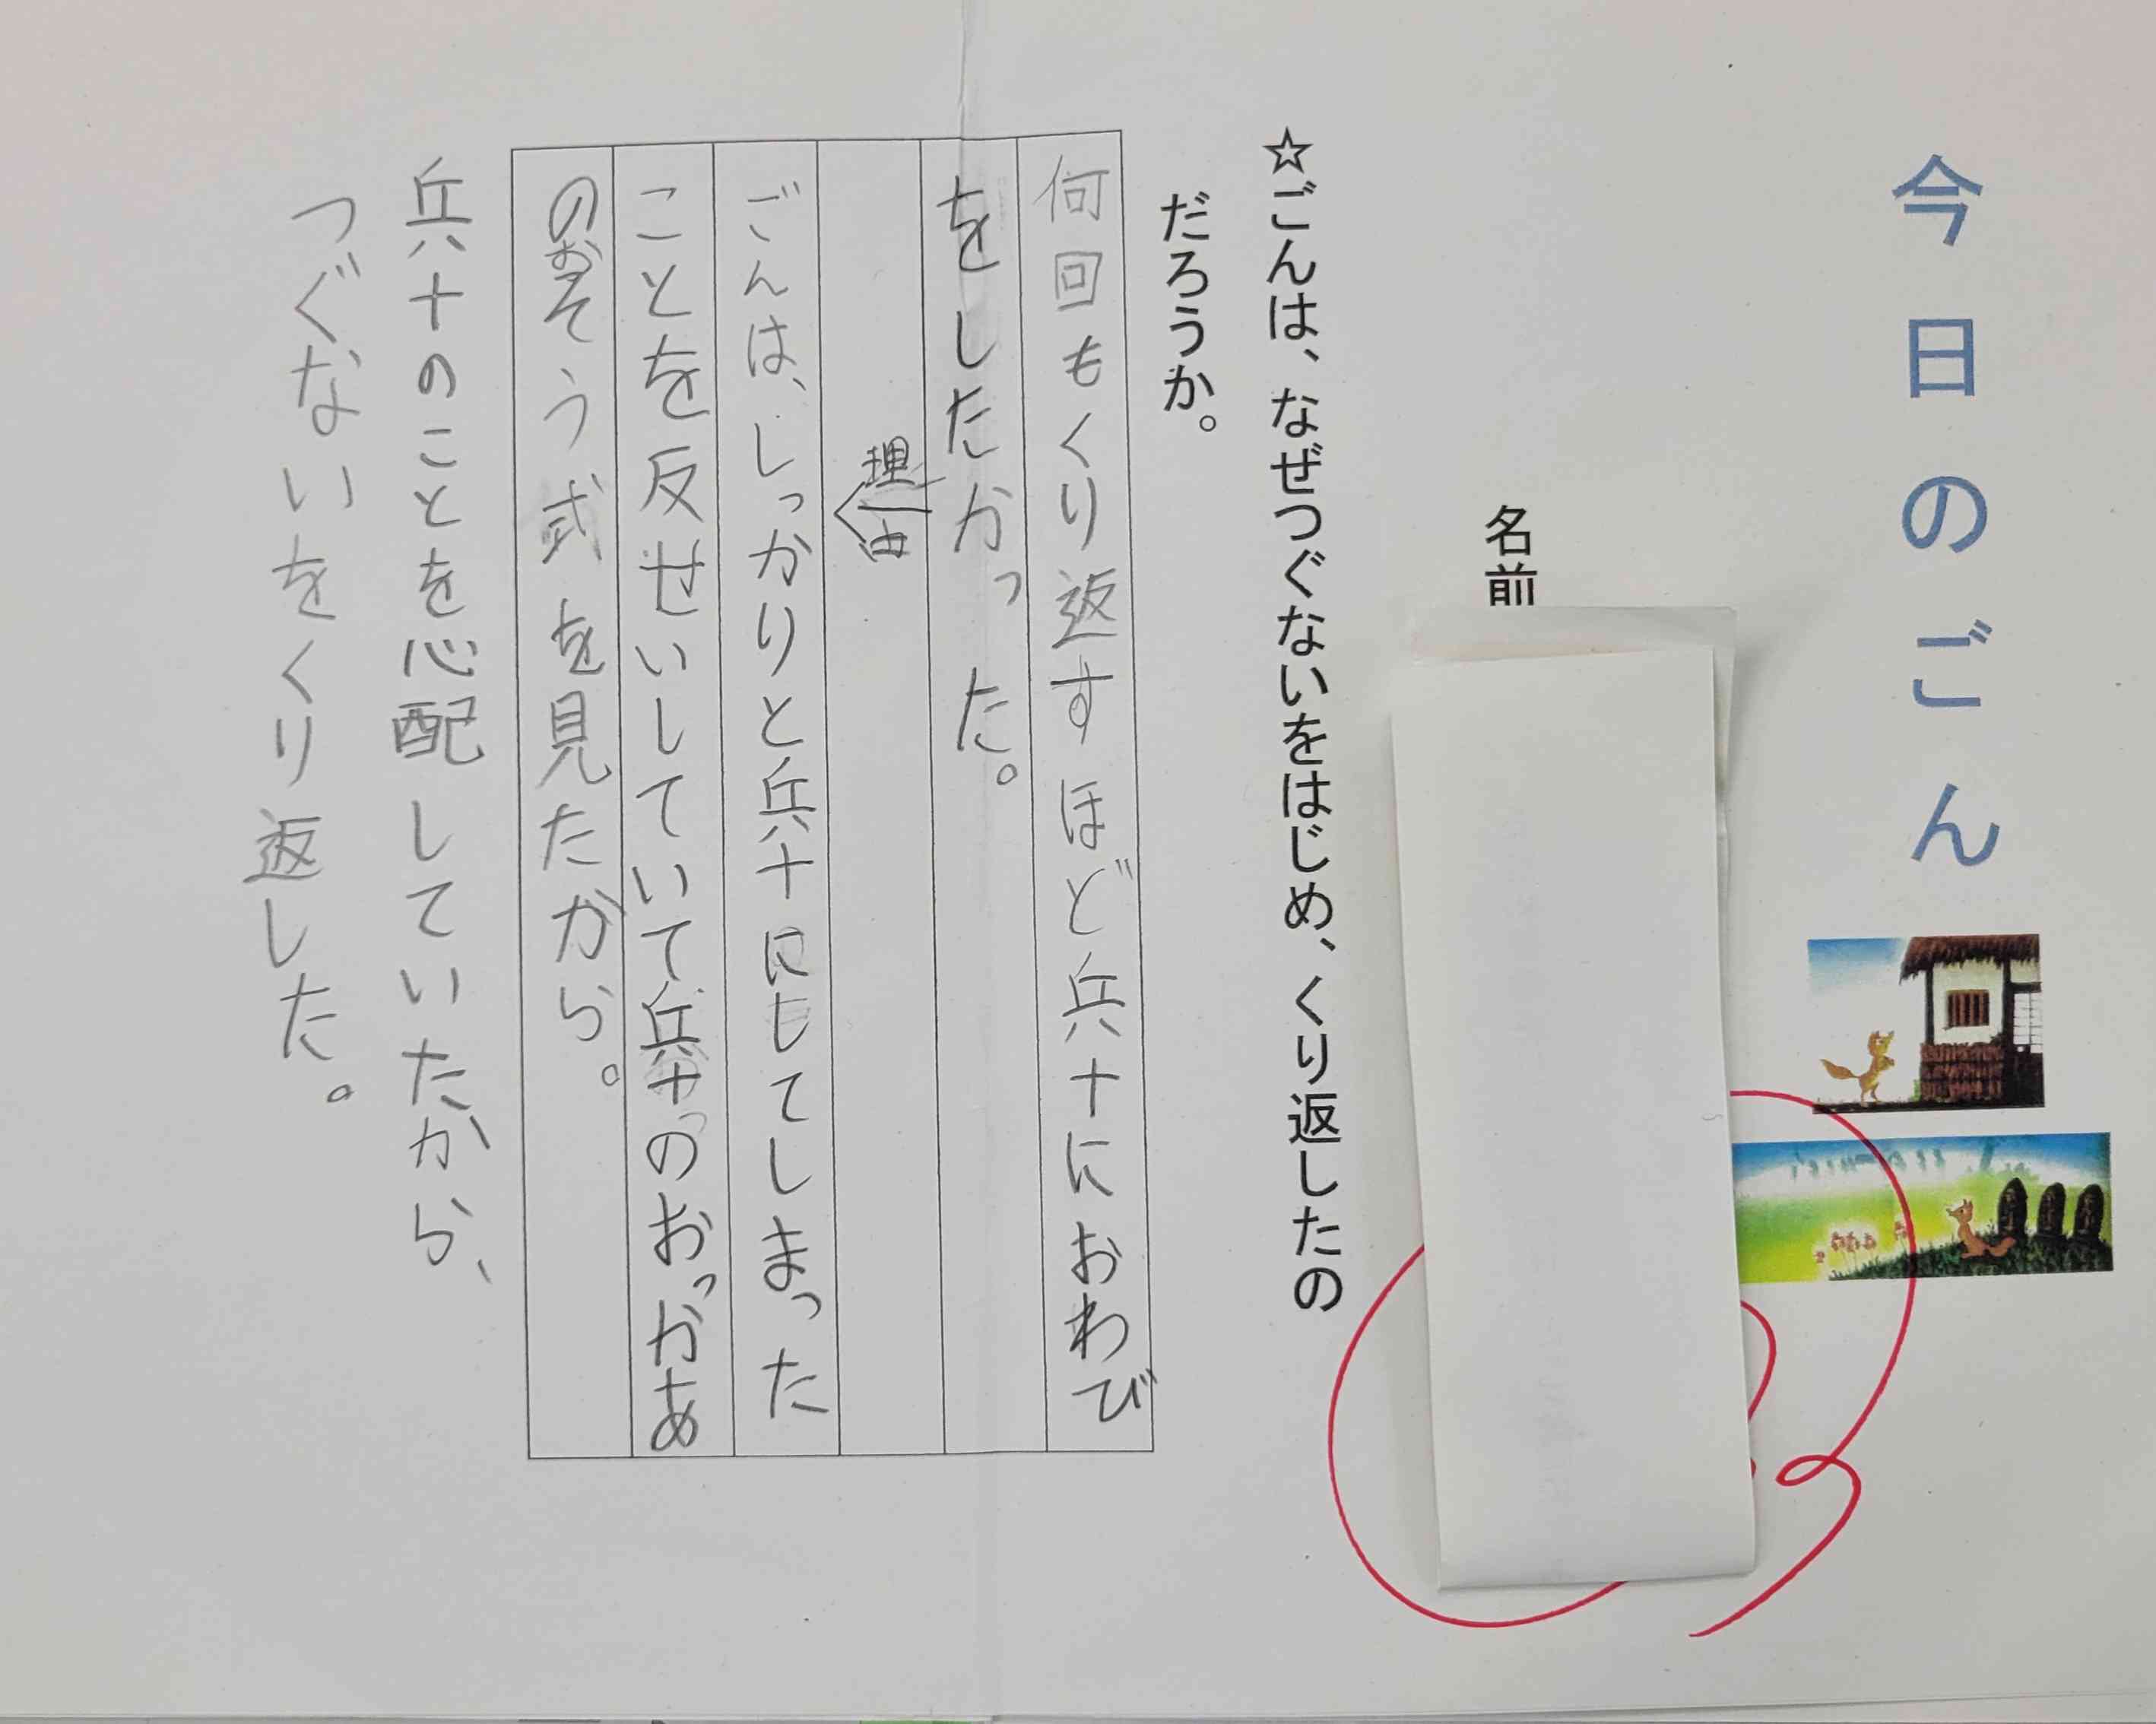 今日のごん
名前
☆ごんは、なぜつぐないをはじめ、くり返したの
だろうか。
何回もくり返すほど兵十におわび
をしたかった。
理由
ごんは、しっかりと兵十にしてしまった
ことを反せいしていて兵十のおっかあ
のおそう式を見たから。
兵十のことを心配していたから、
つぐないをくり返した。